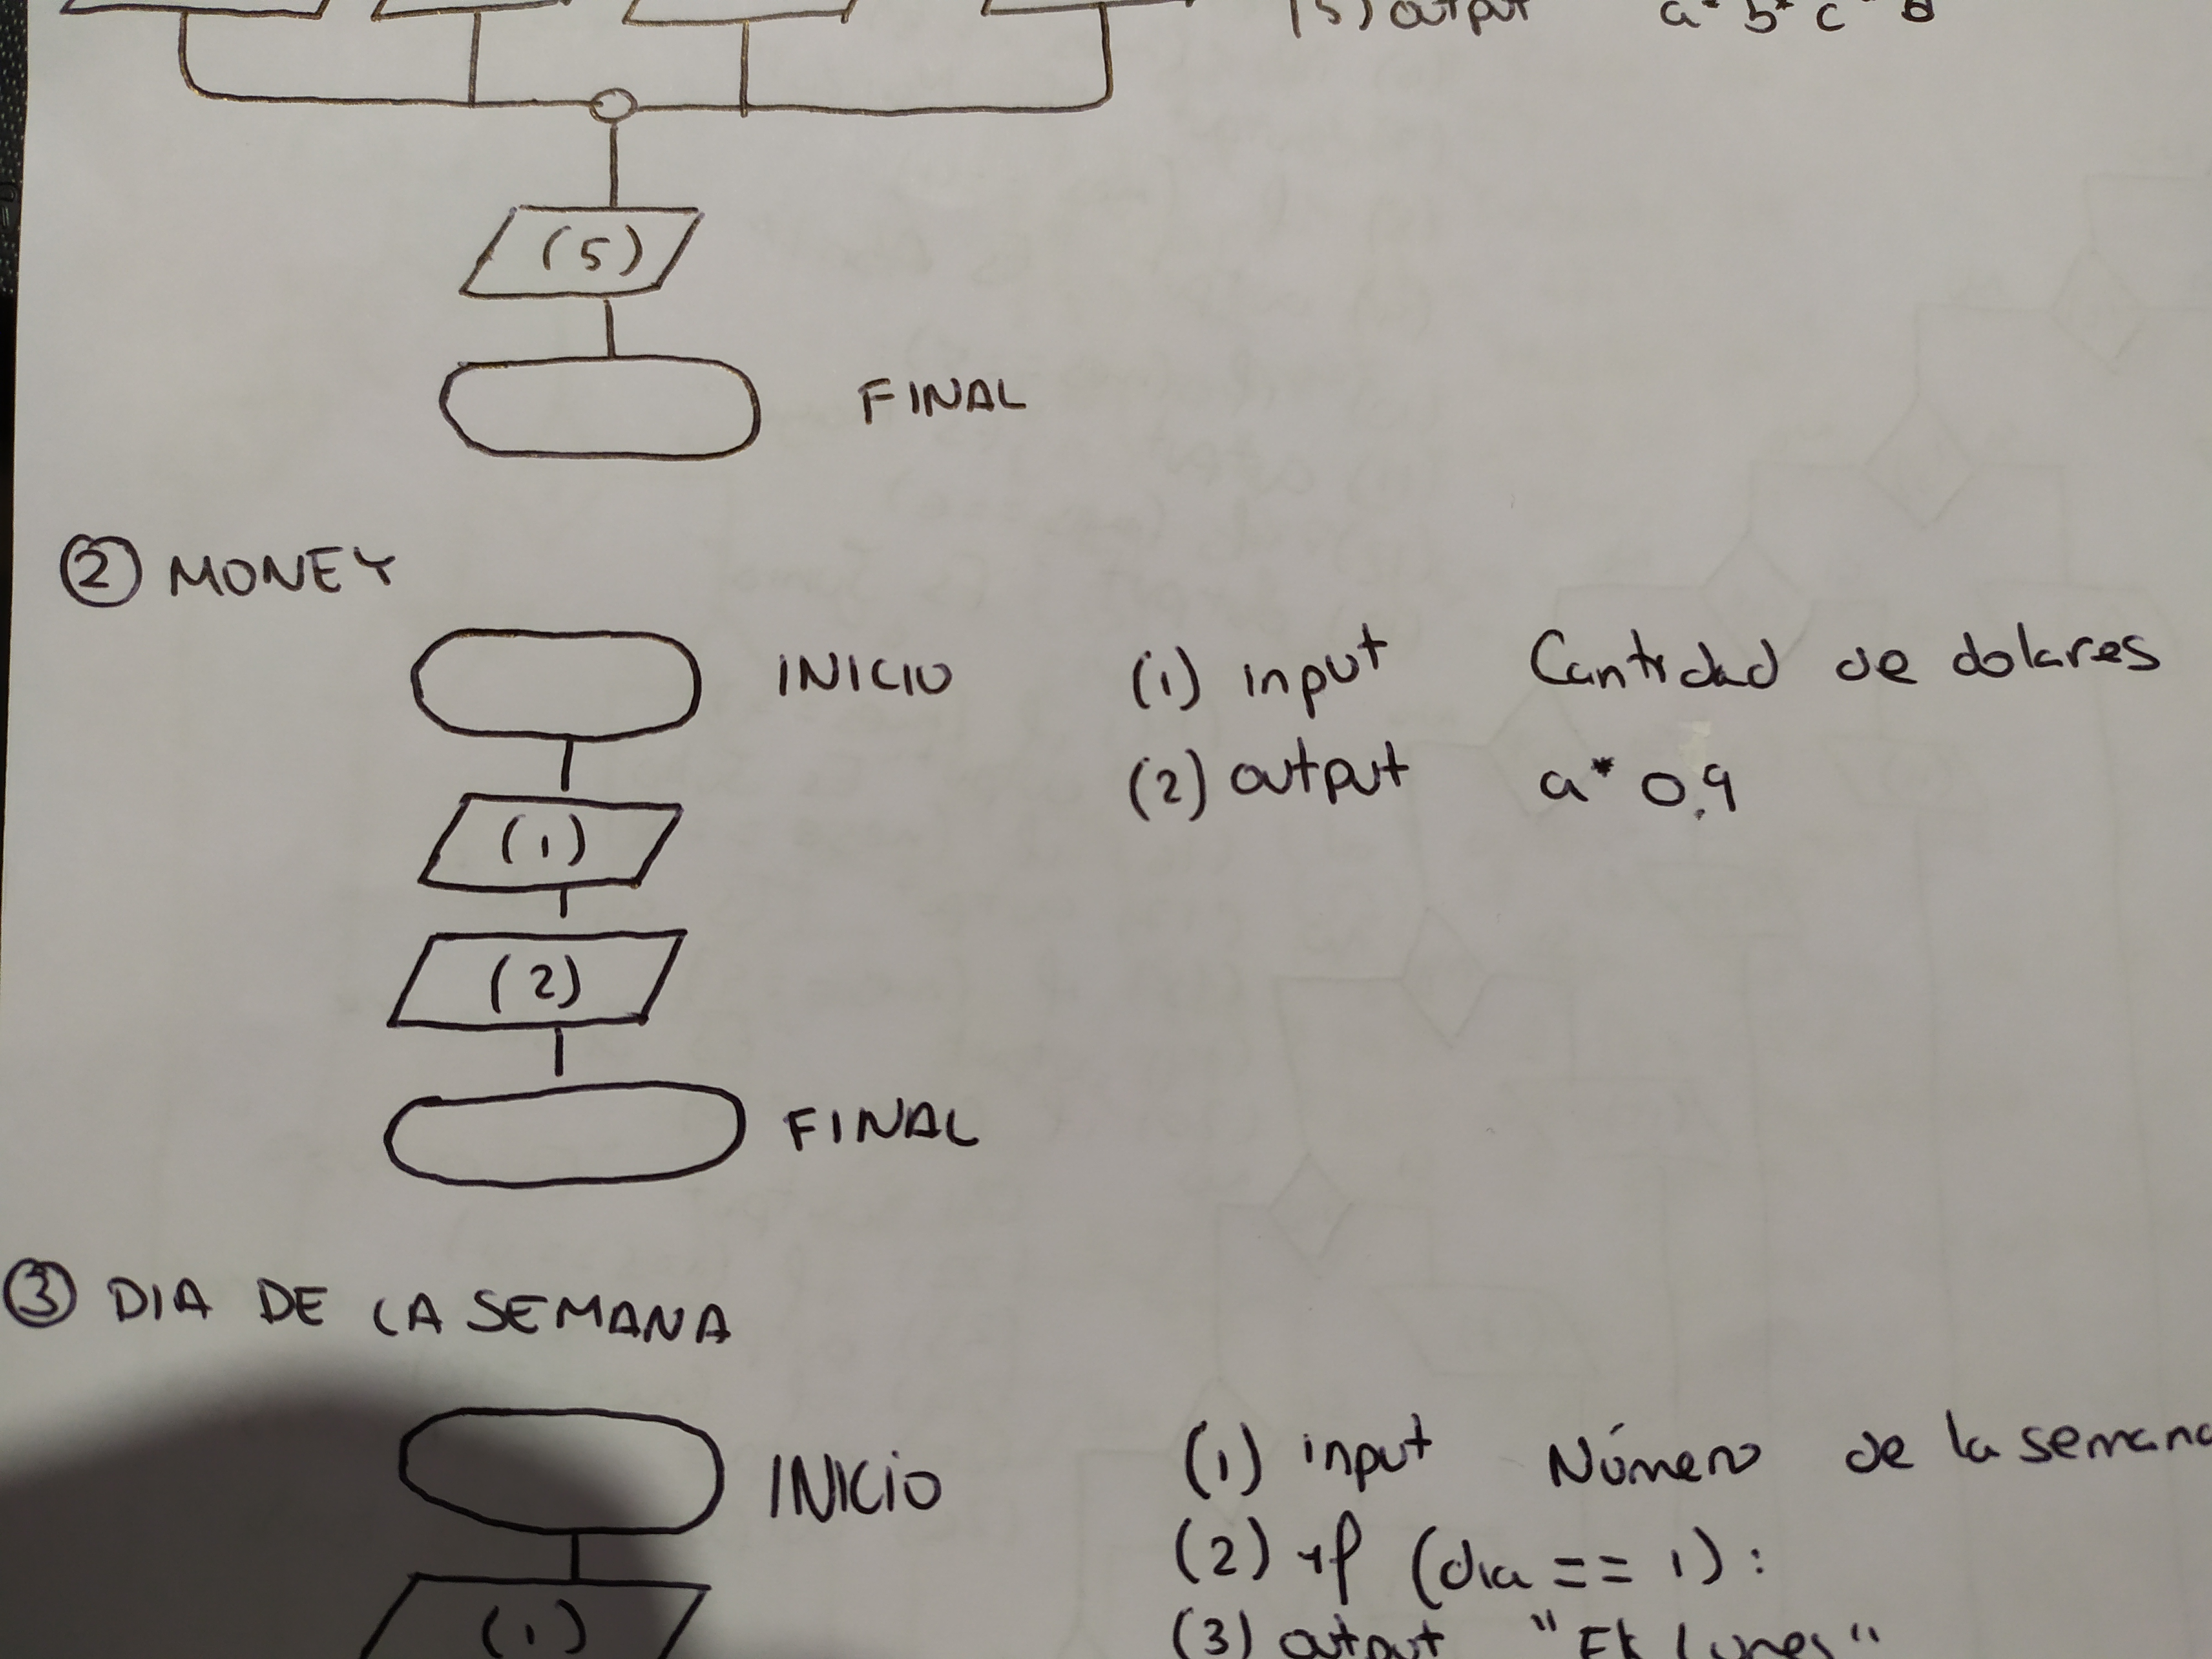 (5) output a * b * c * d
(5)
FINAL
② MONEY
INICIO
(1) input Cantidad de dolares
(2) output a * 0.9
(1)
(2)
FINAL
③ DIA DE LA SEMANA
INICIO
(1) input Número de la semana
(2) if (dia == 1):
(1)
(3) output " lunes"